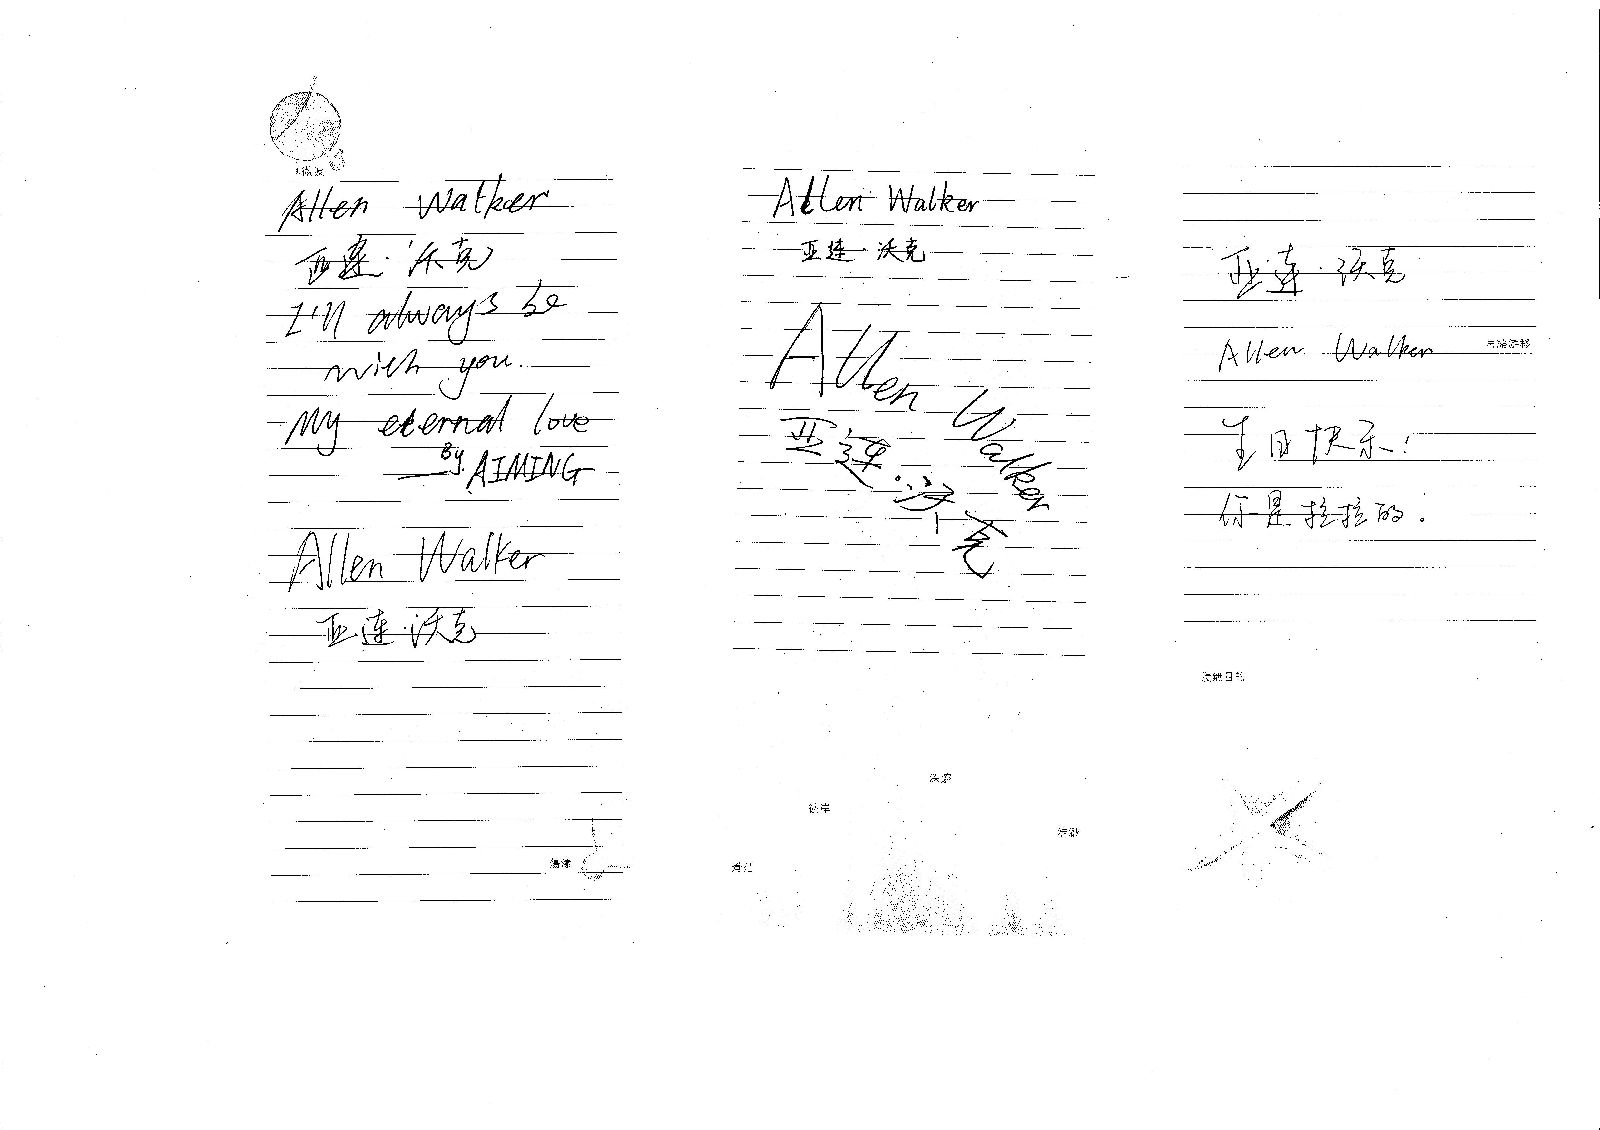 Allen Walker
亚莲·沃克
I'll always be
with you.
My eternal love
——By AIMING
Allen Walker
亚连·沃克
Allen Walker
亚连·沃克
Allen Walker
亚连·沃克
亚连·沃克
Allen Walker
生日快乐!
你是拉拉的.